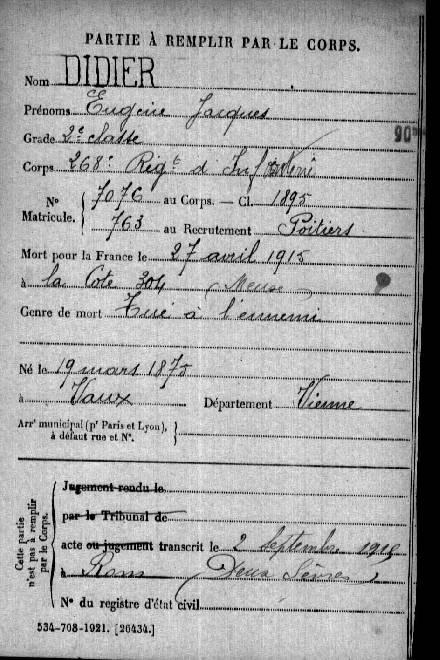 PARTIE À REMPLIR PAR LE CORPS.
Nom DIDIER
Prénoms Eugène Jacques
Grade 2e classe
90e
Corps 268e Régt d'Infanterie
N° Matricule. { 7076 au Corps. — Cl. 1895
763 au Recrutement Poitiers
Mort pour la France le 27 avril 1915
à la Côte 304 (Meuse)
Genre de mort Tué à l'ennemi
Né le 19 mars 1875
à Vaux Département Vienne
Arrt municipal (pr Paris et Lyon), à défaut rue et N°. }
Cette partie n'est pas à remplir par le Corps.
Jugement rendu le
par le Tribunal de
acte ou jugement transcrit le 2 Septembre 1915
à Rom (Deux Sèvres)
N° du registre d'état civil
534-708-1921. [26434.]